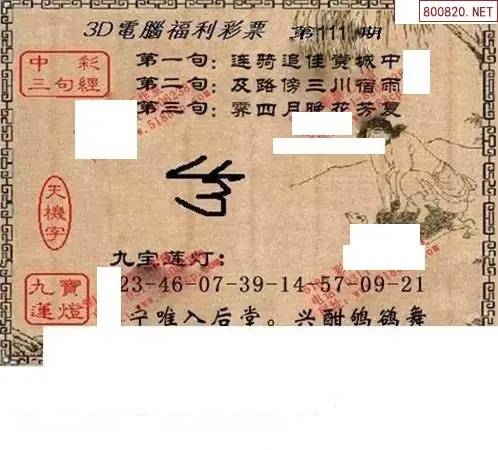 800820.NET
3D電腦福利彩票 第111期
中彩
三句經
第一句：连骑追佳赏城中
第二句：及路傍三川宿雨
第三句：霁四月晚花芳夏
天機字
九宝莲灯：
九寶
蓮燈
23-46-07-39-14-57-09-21
宁唯入后堂。兴酣鸲鹆舞